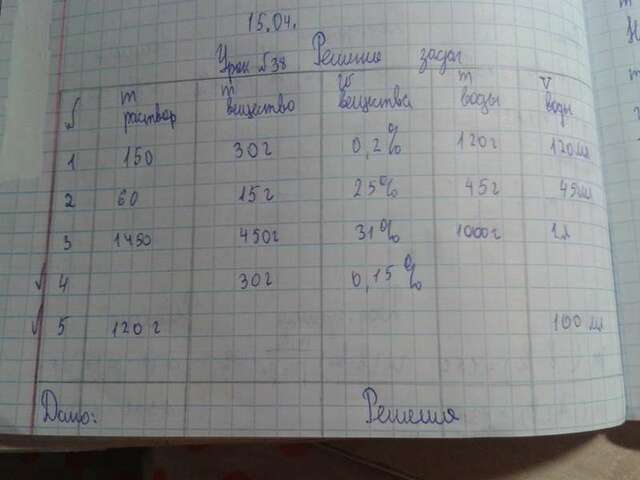 15.04.
Урок №38 Решение задач
№ m раствор m вещество W вещества m воды V воды
1 150 30г 0,2% 120г 120мл
2 60 15г 25% 45г 45мл
3 1450 450г 31% 1000г 1л
√ 4 30г 0,15%
√ 5 120г 100мл
Дано: Решения